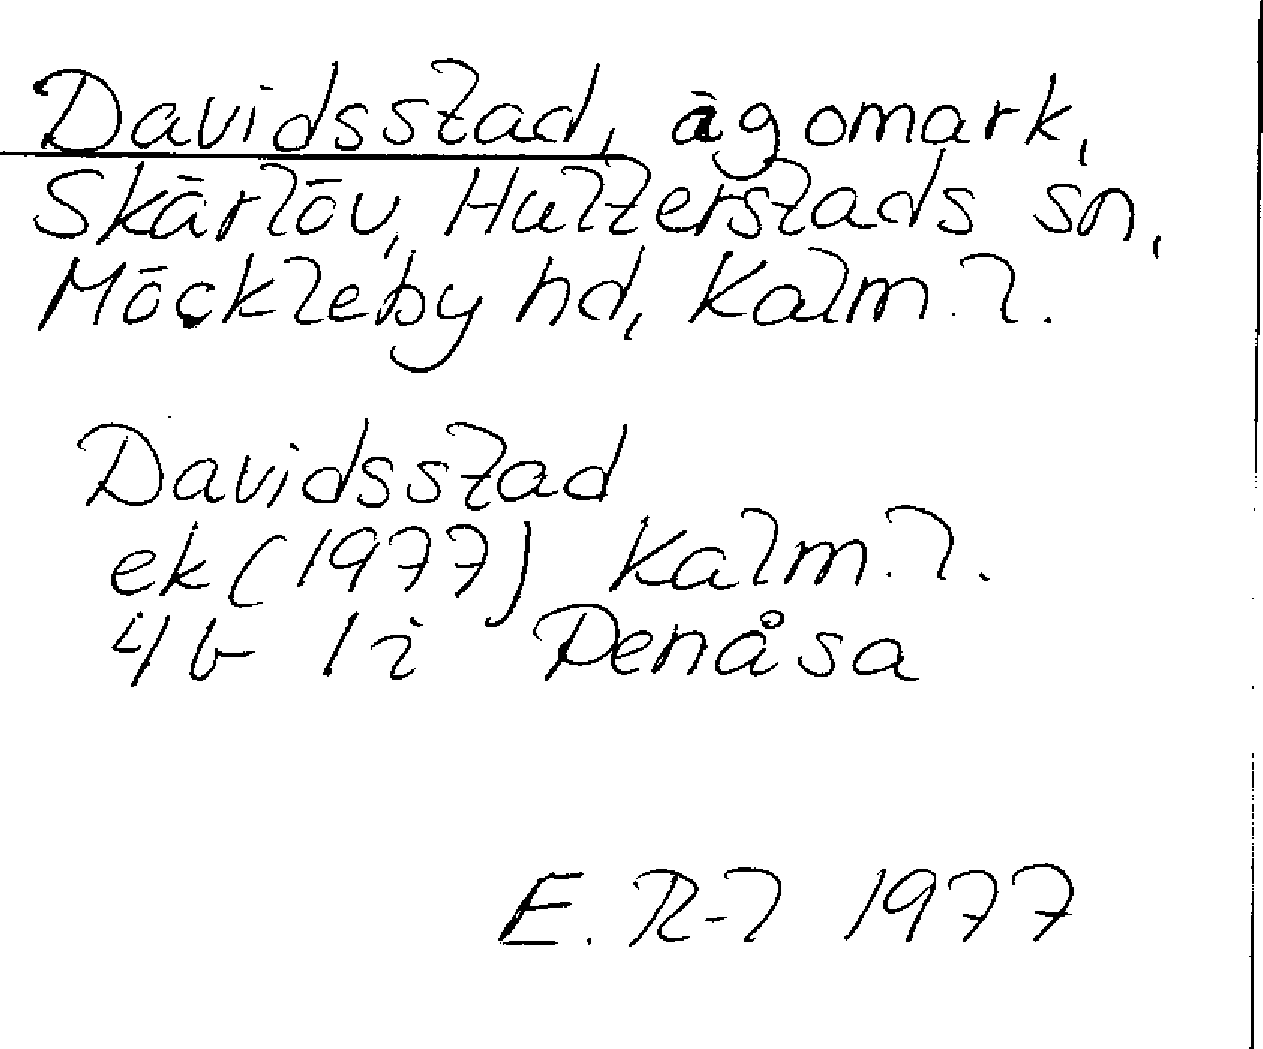 Davidsstad, ägomark,
Skärlöv, Hulterstads sn,
Möckleby hd, Kalm. l.
Davidsstad
ek (1977) Kalm. l.
4 G 1 i Penåsa
E. R-l 1977